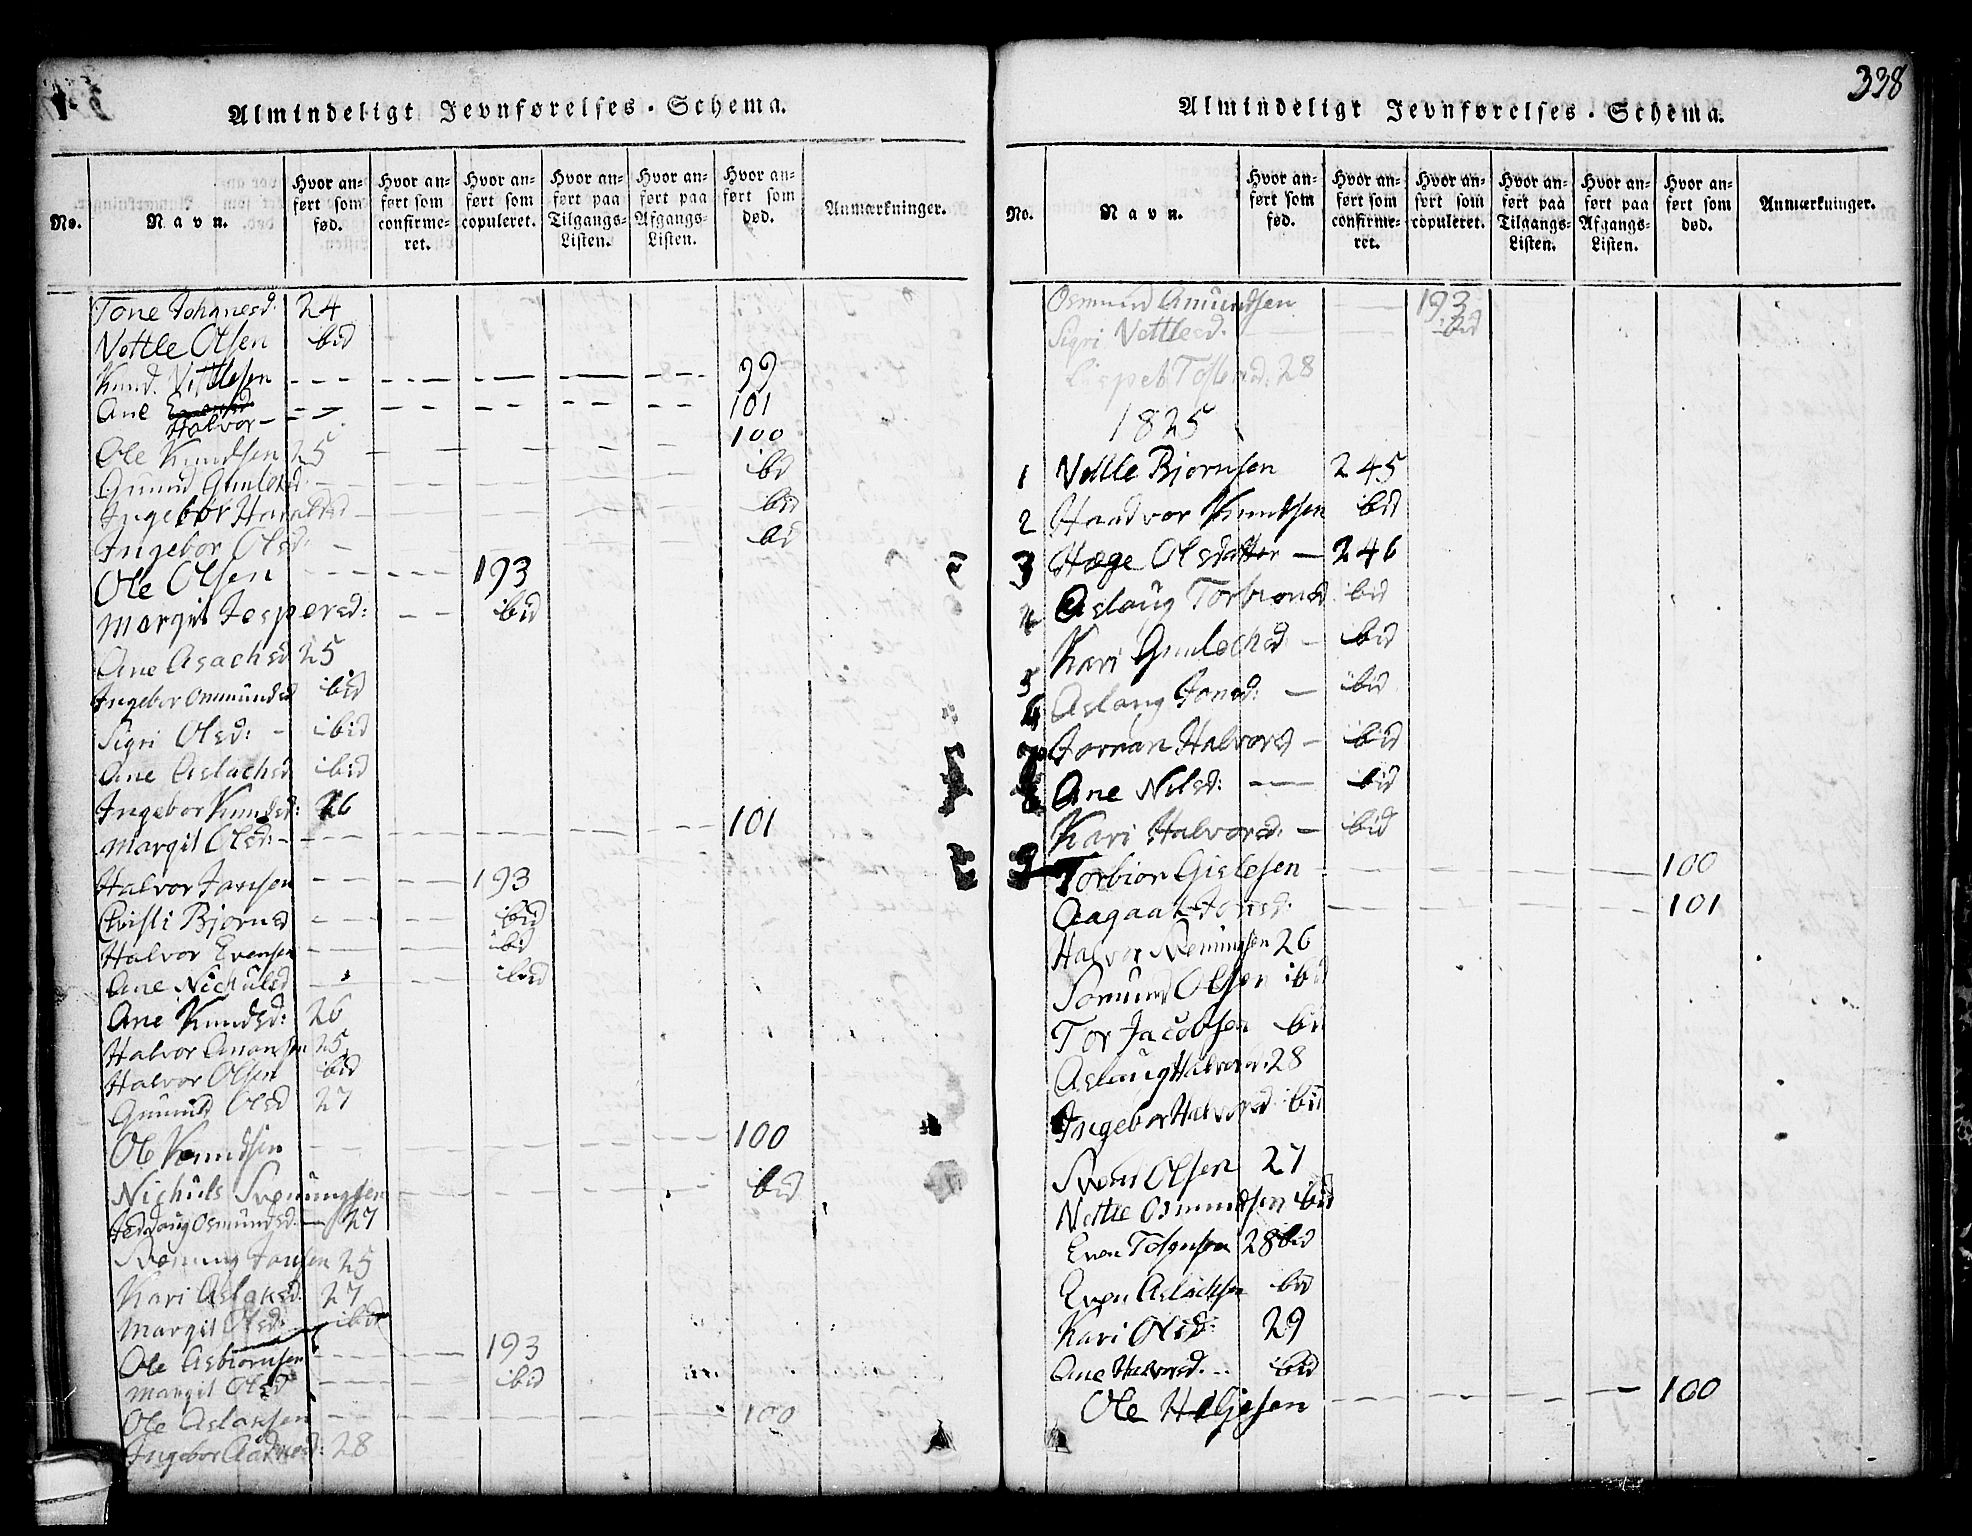 Almindeligt Jevnførelses-Schema.
No. Navn. Hvor anført som fød. Hvor anført som confirmeret. Hvor anført som copuleret. Hvor anført paa Tilgangs-Listen. Hvor anført paa Afgangs-Listen. Hvor anført som død. Anmærkninger.
Tone Johanesd: 24
Vettle Olsen ibid
Knud Vettlesen 99
Ane Halvor- 101
Ole Knudsen 25 100
Gunild ibid
Ingebor ibid
Ingebor Olsd: ibid
Ole Olsen 193
Margit Jespersd: ibid
Ane Aslachsd 25
Ingebor Osmundsd ibid
Sigri Olsd: ibid
Ane Aslachsd ibid
Ingebor Knudsd: 26
Margit Olsd: 101
Halvor Jansen 193
Christi Bjornsd ibid
Halvor Evensen ibid
Ane Nichulsd ibid
Ane Knudsd: 26
Halvor 25
Halvor Olsen ibid
Gunild Olsd 27
Ole Knudsen 100
Nichuls Svenungsen ibid
Osmundsd. 27
Svenung Jansen 25
Kari Aslaksd. 27
Margit Olsd: ibid
Ole Asbiornsen 193
Margit Olsd ibid
Ole Aslaksen 100
Ingebor 28
338
Almindeligt Jevnførelses-Schema.
No. Navn. Hvor anført som fød. Hvor anført som confirmeret. Hvor anført som copuleret. Hvor anført paa Tilgangs-Listen. Hvor anført paa Afgangs-Listen. Hvor anført som død. Anmærkninger.
Osmund Amundsen 193
Sigri Vettlesd. ibid
Lispet 28
1825
1 Vettle Bjornsen 245
2 Haadvor Knudsen ibid
3 Hæge Olsdatter 246
4 Aslaug Torbionsd ibid
5 Kari Gunlechsd ibid
6 Aslaug Jonsd: ibid
7 Joraan Halvorsd ibid
8 Ane Nilsd: ibid
9 Kari Halvorsd. ibid
Torbion Gislesen 100
Aagaat Jonsd: 101
Halvor Svenungsen 26
Somund Olsen ibid
Tor Jacobsen ibid
Aslaug Halvorsd. 28
Ingebor Halvorsd ibid
Sven Olsen 27
Vettle Osmundsen ibid
Even 28 ibid
Even Aslacksen ibid
Kari Olsd: 29
Ane Halvorsd. ibid
Ole Helgesen 100